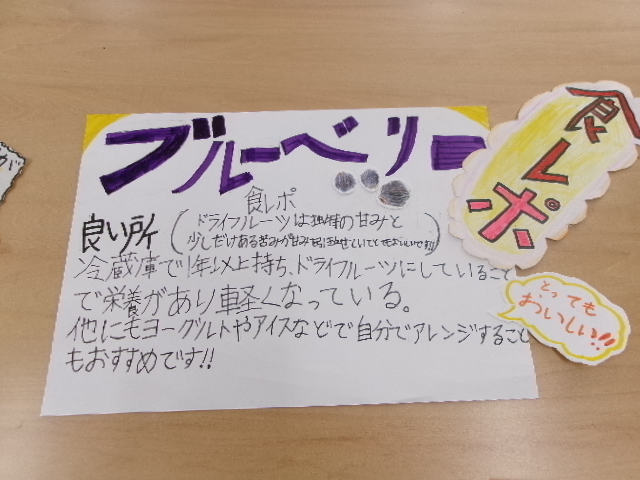 ブルーベリー
食レポ
ドライフルーツは独特の甘みと
少しだけある苦みが甘みを引き立たせていてとてもおいしいです!!!
良い所
冷蔵庫で1年以上持ち、ドライフルーツにしていること
で栄養があり軽くなっている。
他にもヨーグルトやアイスなどで自分でアレンジすること
もおすすめです!!
食レポ
とっても
おいしい!!
が